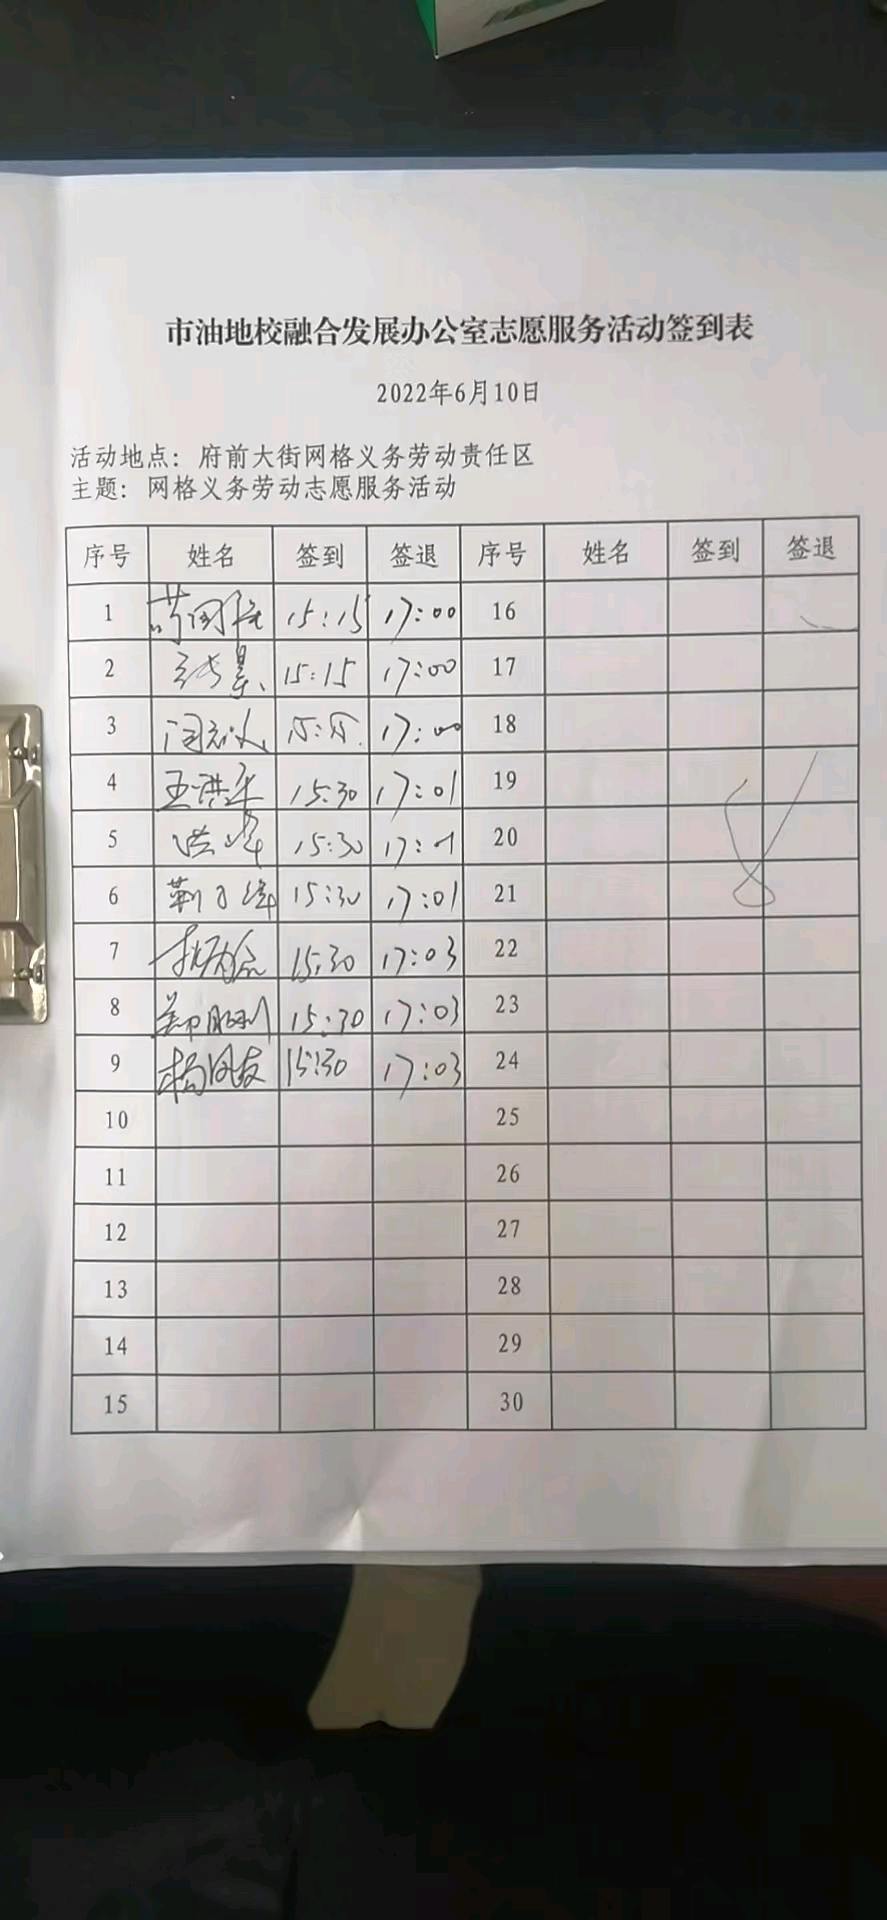 市油地校融合发展办公室志愿服务活动签到表
2022年6月10日
活动地点：府前大街网格义务劳动责任区
主题：网格义务劳动志愿服务活动
序号 姓名 签到 签退 序号 姓名 签到 签退
1 15:15 17:00 16
2 15:15 17:00 17
3 17:00 18
4 15:30 17:01 19
5 洪峰 15:30 17:01 20
6 15:30 17:01 21
7 15:30 17:03 22
8 15:30 17:03 23
9 15:30 17:03 24
10 25
11 26
12 27
13 28
14 29
15 30